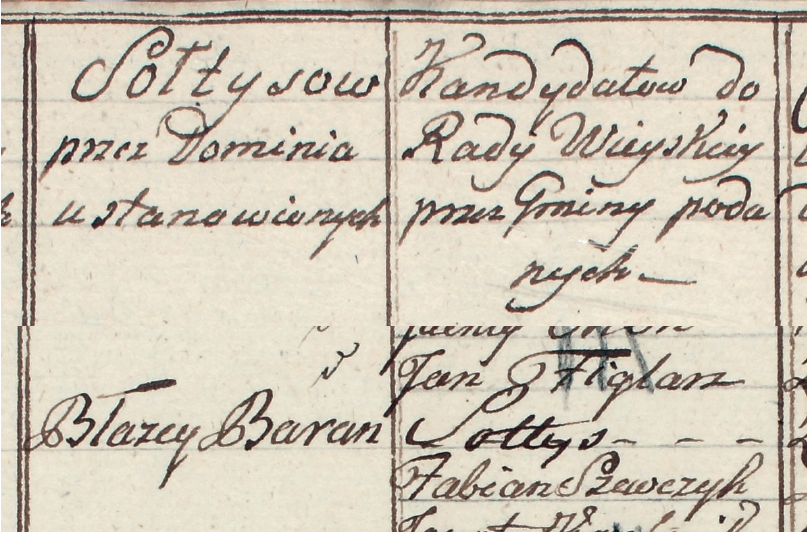 Sołtysow
przez Dominia
ustanowionych
Kandydatow do
Rady Wieyskiey
przez Gminy poda
nych –
Błazey Baran
Jan Figlarz
Sołtys - - -
Fabian Szewczyk